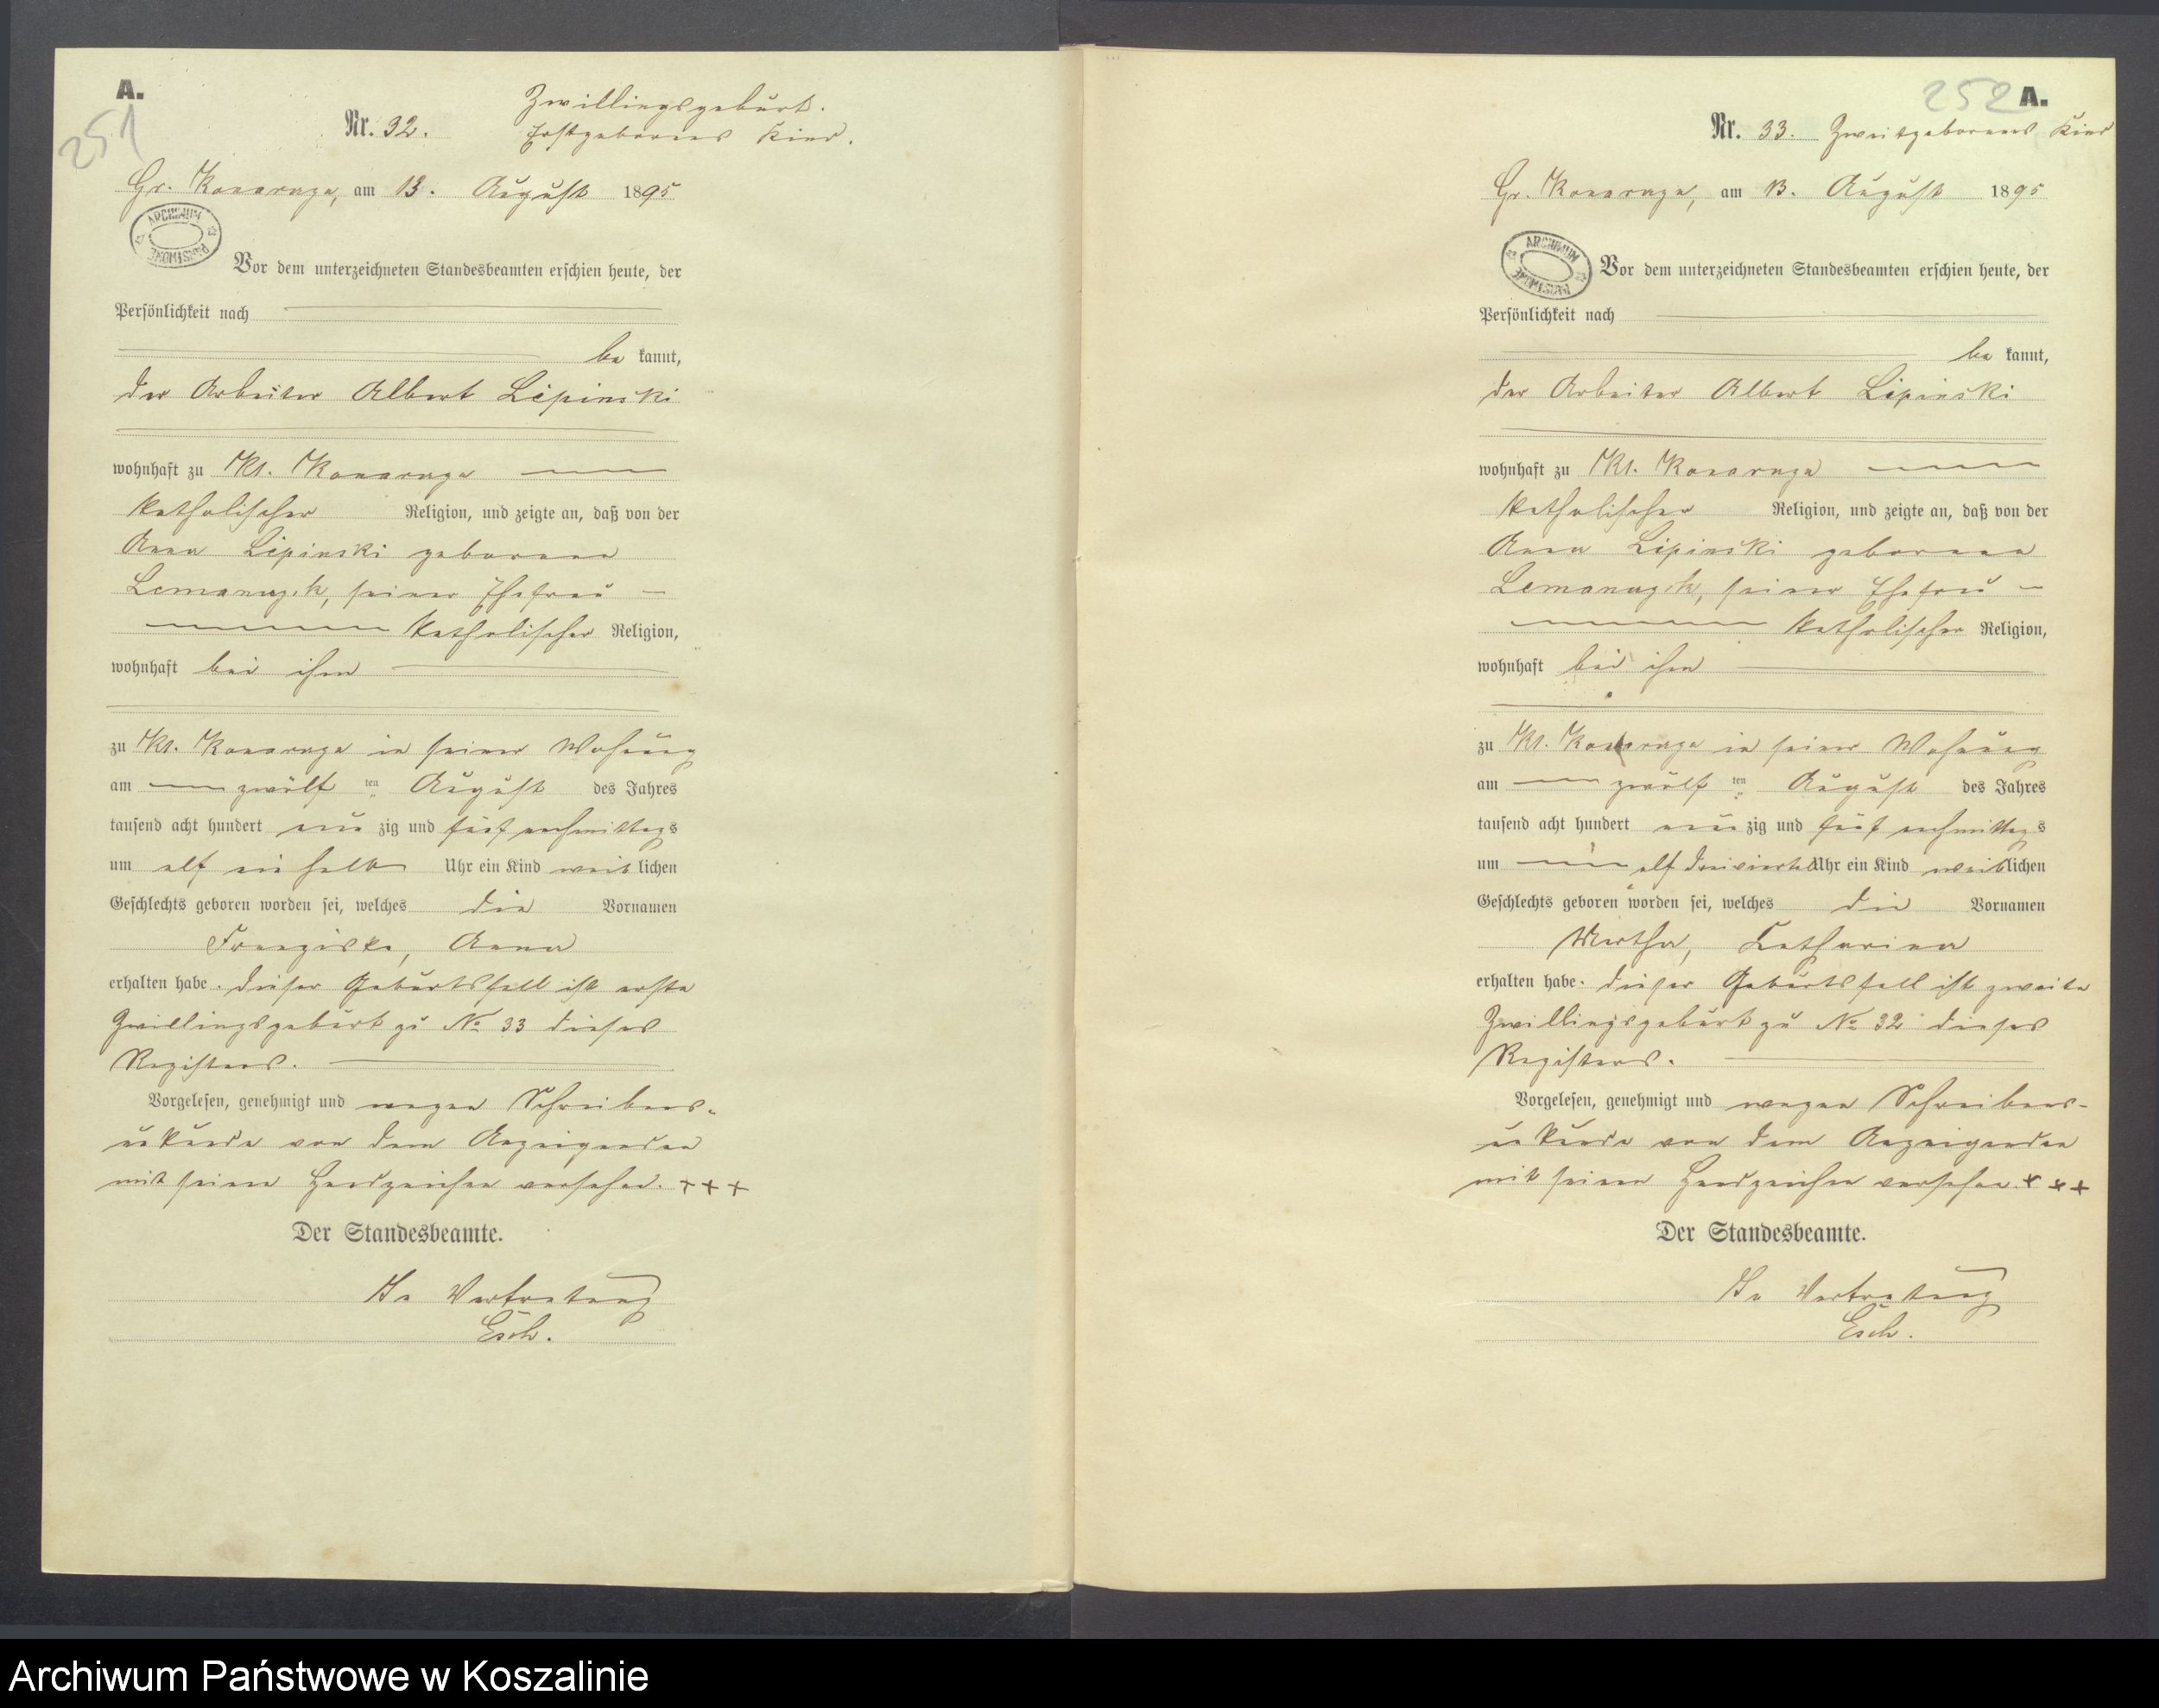 A.
251
Zwillingsgeburt.
Nr. 32. Erstgeborenes Kind.
Gr. Konarzyn, am 13. August 1895
ARCHIWUM PAŃSTWOWE
Vor dem unterzeichneten Standesbeamten erschien heute, der
Persönlichkeit nach
be kannt,
der Arbeiter Albert Lipinski
wohnhaft zu Kl. Konarzyn
katholischer Religion, und zeigte an, daß von der
Anna Lipinski geborene
seiner Ehefrau
katholischer Religion,
wohnhaft bei ihm
zu Kl. Konarzyn in seiner Wohnung
am zwölf ten August des Jahres
tausend acht hundert neun zig und fünf nachmittags
um elf ein halb Uhr ein Kind weib lichen
Geschlechts geboren worden sei, welches die Vornamen
Franziska, Anna
erhalten habe. Dieser Geburtsfall ist erste
Zwillingsgeburt zu No 33 dieses
Registers.
Vorgelesen, genehmigt und wegen Schreibens-
unkunde von dem Anzeigenden
mit seinem Handzeichen versehen. +++
Der Standesbeamte.
In Vertretung
Esch.
252 A.
Nr. 33. Zweitgeborenes Kind
Gr. Konarzyn, am 13. August 1895
ARCHIWUM PAŃSTWOWE
Vor dem unterzeichneten Standesbeamten erschien heute, der
Persönlichkeit nach
be kannt,
der Arbeiter Albert Lipinski
wohnhaft zu Kl. Konarzyn
katholischer Religion, und zeigte an, daß von der
Anna Lipinski geborene
seiner Ehefrau
katholischer Religion,
wohnhaft bei ihm
zu Kl. Konarzyn in seiner Wohnung
am zwölf ten August des Jahres
tausend acht hundert neun zig und fünf nachmittags
um elf dreiviertel Uhr ein Kind weib lichen
Geschlechts geboren worden sei, welches die Vornamen
Martha, Catharina
erhalten habe. Dieser Geburtsfall ist zweite
Zwillingsgeburt zu No 32 dieses
Registers.
Vorgelesen, genehmigt und wegen Schreibens-
unkunde von dem Anzeigenden
mit seinem Handzeichen versehen. +++
Der Standesbeamte.
In Vertretung
Esch.
Archiwum Państwowe w Koszalinie